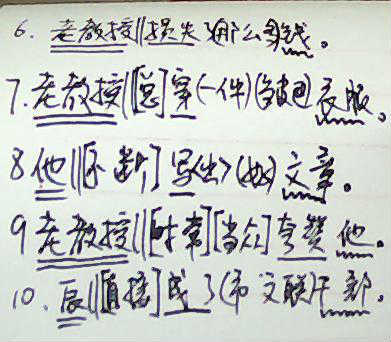 6. 老教授‖损失了那么多钱。
7. 老教授‖[总]穿(一件)( )衣服。
8 他‖[不断]写出了( )文章。
9 老教授‖[时常][当众]夸赞他。
10. 辰‖[直接]成了(市文联)干部。